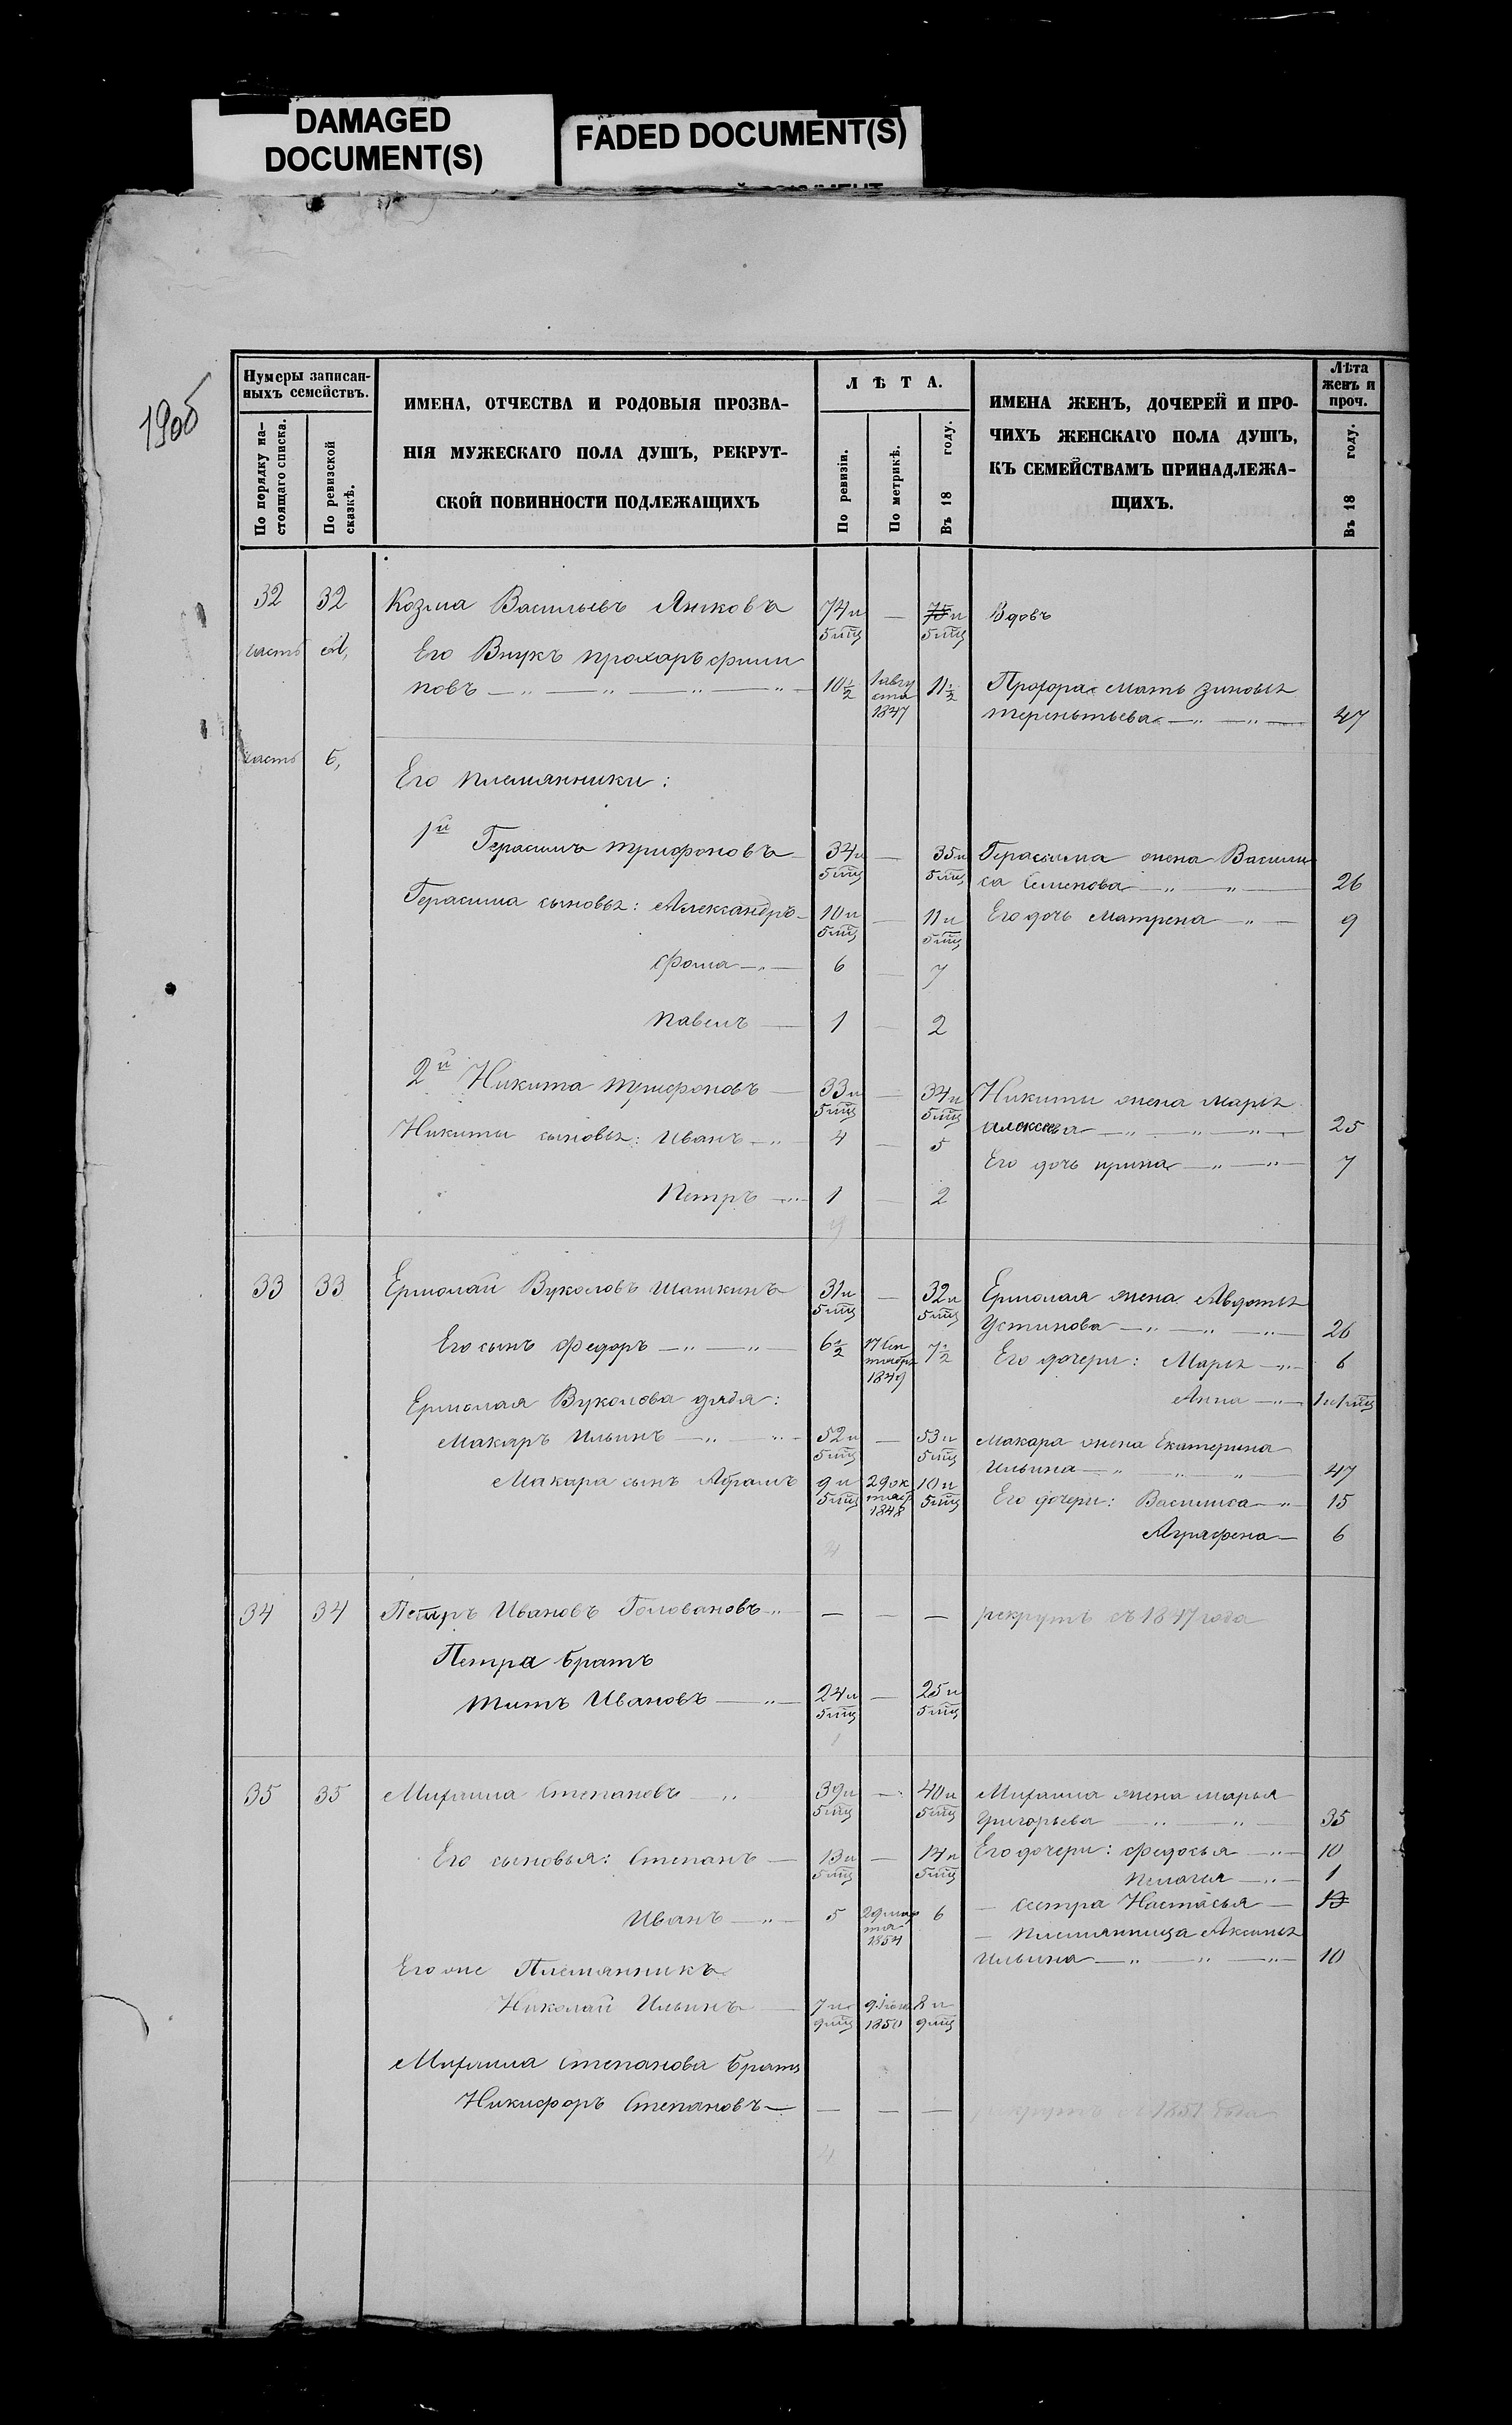 DAMAGED
DOCUMENT(S)
FADED DOCUMENT(S)
Нумеры записан-
ныхъ семействъ.
По порядку на-
стоящаго списка.
По ревизской
сказкѣ.
ИМЕНА, ОТЧЕСТВА И РОДОВЫЯ ПРОЗВА-
НІЯ МУЖЕСКАГО ПОЛА ДУШЪ, РЕКРУТ-
СКОЙ ПОВИННОСТИ ПОДЛЕЖАЩИХЪ
Л Ѣ Т А.
По ревизіи.
По метрикѣ.
Въ 18 году.
ИМЕНА ЖЕНЪ, ДОЧЕРЕЙ И ПРО-
ЧИХЪ ЖЕНСКАГО ПОЛА ДУШЪ,
КЪ СЕМЕЙСТВАМЪ ПРИНАДЛЕЖА-
ЩИХЪ.
Лѣта
женъ и
проч.
Въ 18 году.
32 32 Козма Васильевъ Яшковъ 74 и — 75 и Вдовъ
5 мцъ 5 мцъ
часть А, Его Внукъ Прохаръ Фили
повъ — 10½ 1 авгу 11½ Прохора мать Зиновья
ста
1847
Терентьева — 47
часть б,
Его племянники:
1й Герасимъ Трифоновъ 34 и — 35 и Герасима жена Васили
5 мцъ 5 мцъ са Семенова — 26
Герасима сыновья: Александръ 10 и — 11 и Его дочь Матрена — 9
5 мцъ 5 мцъ
Фома — 6 — 7
Павелъ — 1 — 2
2й Никита Трифоновъ — 33 и — 34 и Никиты жена Марья
5 мцъ 5 мцъ Алексѣева — 25
Никиты сыновья: Иванъ — 4 — 5
Его дочь Ирина — 7
Петръ — 1 — 2
33 33 Ермолай Вуколовъ Шашкинъ 31 и — 32 и Ермолая жена Авдотья
5 мцъ 5 мцъ Устинова — 26
Его сынъ Федоръ — 6½ 17 Сен 7½ Его дочери: Марья — 6
тября
1849
Анна — 1 и 1 мцъ
Ермолая Вуколова дядя:
Макаръ Ильинъ — 52 и — 53 и Макара жена Екатерина
5 мцъ 5 мцъ Ильина — 47
Макара сынъ Абрамъ 9 и 29 ок 10 и Его дочери: Василиса — 15
5 мцъ тяб 5 мцъ
1848
Аграфена — 6
4
34 34 Петръ Ивановъ Головановъ — — — рекрутъ съ 1847 года
Петра братъ
Титъ Ивановъ — 24 и — 25 и
5 мцъ 5 мцъ
1
35 35 Михаила Степановъ — 39 и — 40 и Михаила жена Марья
5 мцъ 5 мцъ Григорьева — 35
Его сыновья: Степанъ — 13 и — 14 и Его дочери: Федосья — 10
5 мцъ 5 мцъ
Пелагея — 1
Иванъ — 5 29 мар 6 — сестра Настасья — 13
та
1854
— племянница Аксинья
Ильина — 10
Его же Племянникъ
Николай Ильинъ 7 и 9 8 и
9 мцъ 1850 9 мцъ
Михаила Степанова братъ
Никифоръ Степановъ — — — — рекрутъ съ 1851 года
4